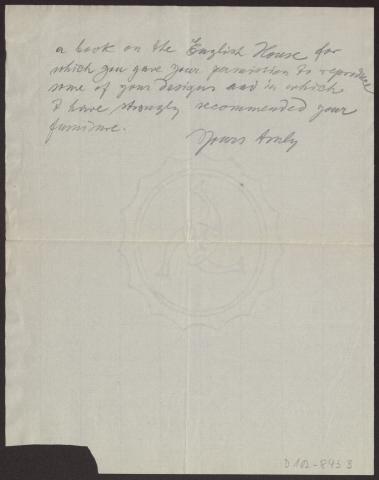 a book on the English House for
which you gave your permission to reproduce
some of your designs and in which
I have strongly recommended your
furniture.
Yours truly
D 102-8953